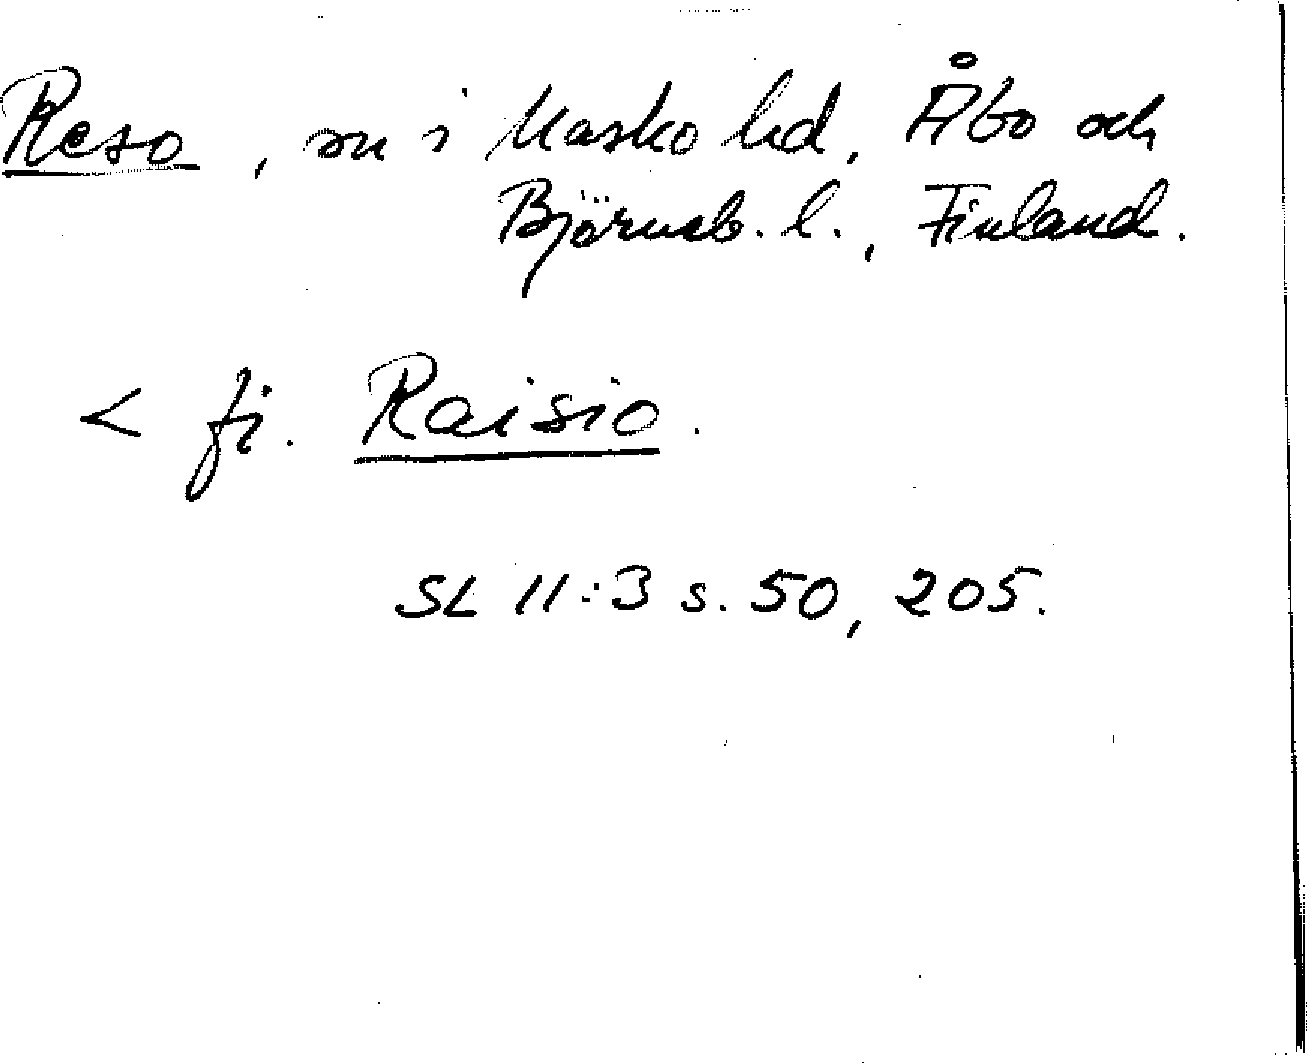 Reso, sn i Masko hd, Åbo och
Björneb. l., Finland.
< fi. Raisio.
SL 11:3 s. 50, 205.